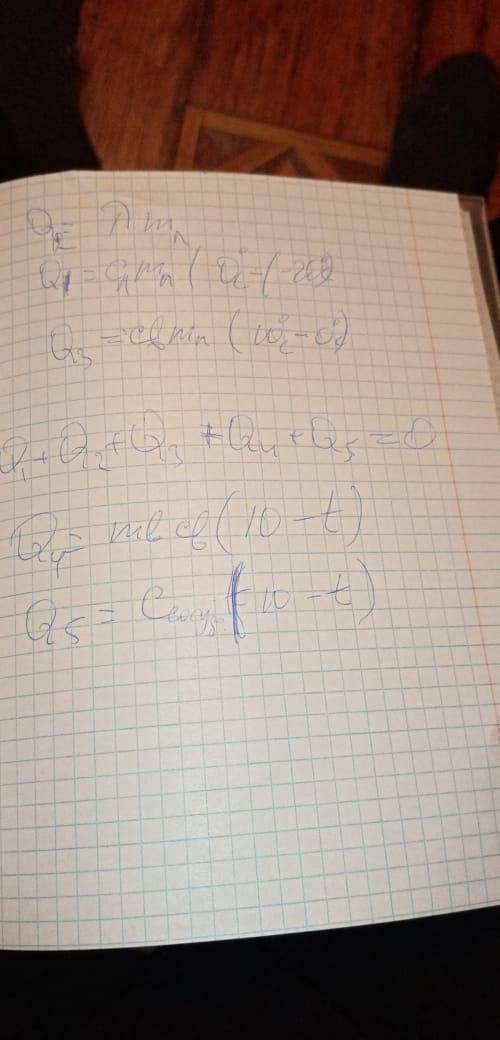 Q₂ = λ mл
Q₁ = Cл mл ( 0°c - (-20
Q₃ = Cв mл ( 10°c - 0°c)
Q₁ + Q₂ + Q₃ + Q₄ + Q₅ = 0
Q₄ = mв Cв ( 10 - t )
Q₅ = Cсосуд ( 10 - t )